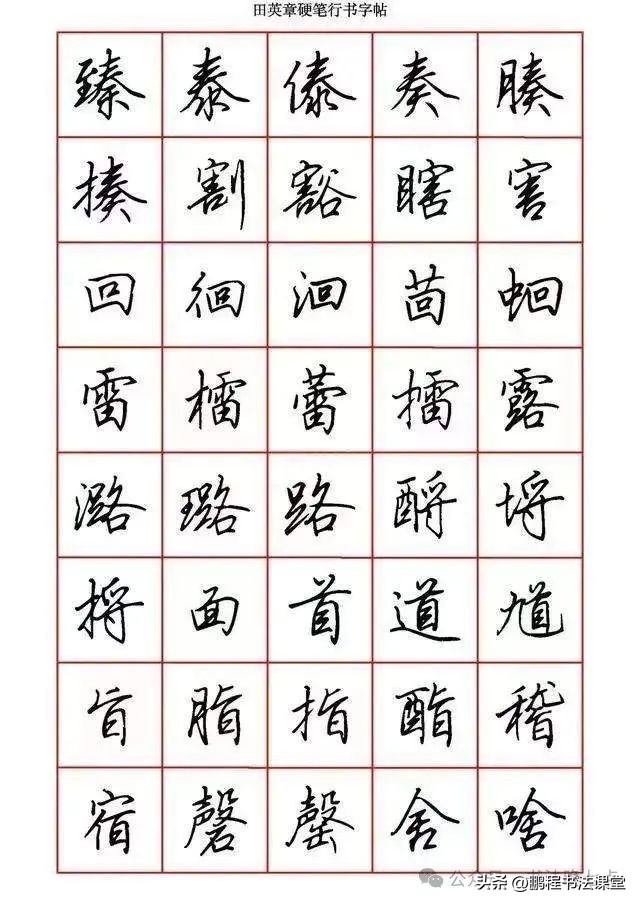 田英章硬笔行书字帖
臻 泰 傣 奏 腠
揍 割 豁 瞎 害
回 徊 洄 茴 蛔
雷 檑 蕾 擂 露
潞 璐 路 酹 埒
捋 面 首 道 馗
旨 脂 指 酯 稽
宿 磬 罄 舍 啥
头条 @鹏程书法课堂